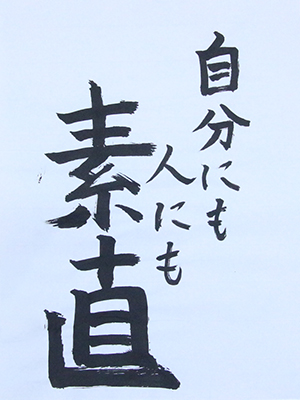 自分にも
人にも
素直